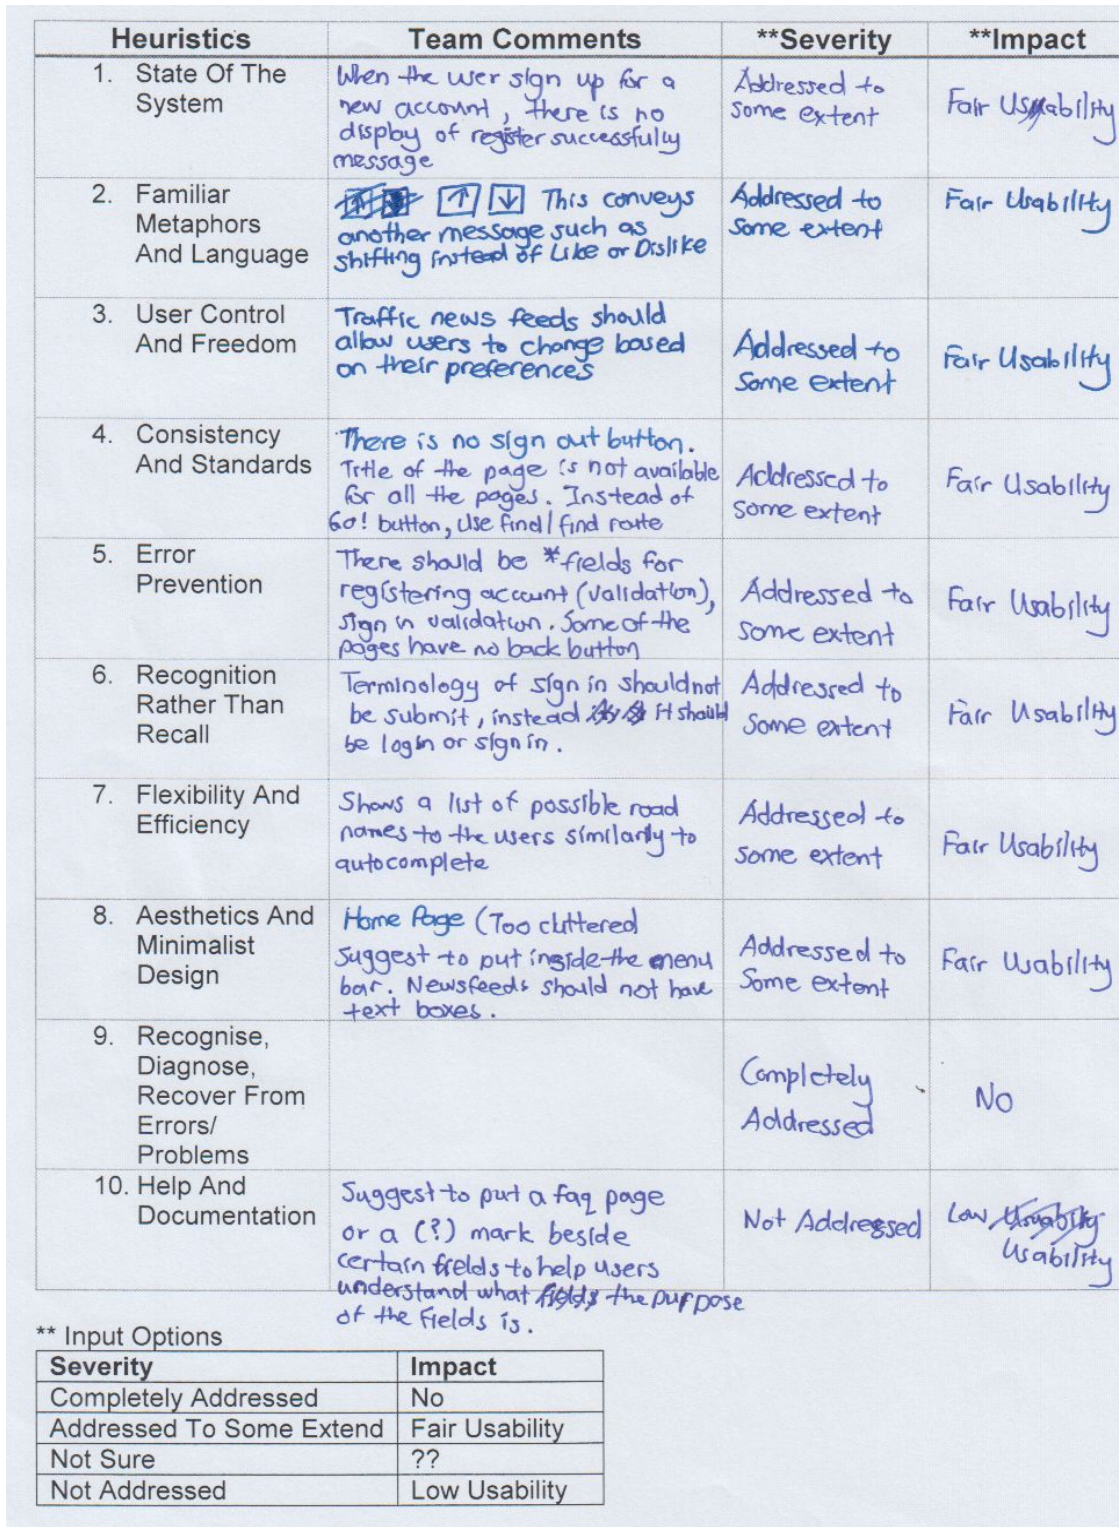 Heuristics Team Comments **Severity **Impact
1. State Of The
System
When the user sign up for a
new account, there is no
display of register successfully
message
Addressed to
some extent
Fair Usability
2. Familiar
Metaphors
And Language
↑ ↓ This conveys
another message such as
shifting instead of Like or Dislike
Addressed to
some extent
Fair Usability
3. User Control
And Freedom
Traffic news feeds should
allow users to change based
on their preferences
Addressed to
some extent
Fair Usability
4. Consistency
And Standards
There is no sign out button.
Title of the page is not available
for all the pages. Instead of
Go! button, use find/find route
Addressed to
some extent
Fair Usability
5. Error
Prevention
There should be *fields for
registering account (validation),
sign in validation. Some of the
pages have no back button
Addressed to
some extent
Fair Usability
6. Recognition
Rather Than
Recall
Terminology of sign in should not
be submit, instead it should
be login or sign in.
Addressed to
some extent
Fair Usability
7. Flexibility And
Efficiency
Shows a list of possible road
names to the users similarly to
autocomplete
Addressed to
some extent
Fair Usability
8. Aesthetics And
Minimalist
Design
Home Page (Too cluttered
Suggest to put inside the menu
bar. Newsfeeds should not have
text boxes.
Addressed to
Some extent
Fair Usability
9. Recognise,
Diagnose,
Recover From
Errors/
Problems
Completely
Addressed
No
10. Help And
Documentation
Suggest to put a faq page
or a (?) mark beside
certain fields to help users
understand what the purpose
of the fields is.
Not Addressed
Low
Usability
** Input Options
Severity Impact
Completely Addressed No
Addressed To Some Extend Fair Usability
Not Sure ??
Not Addressed Low Usability